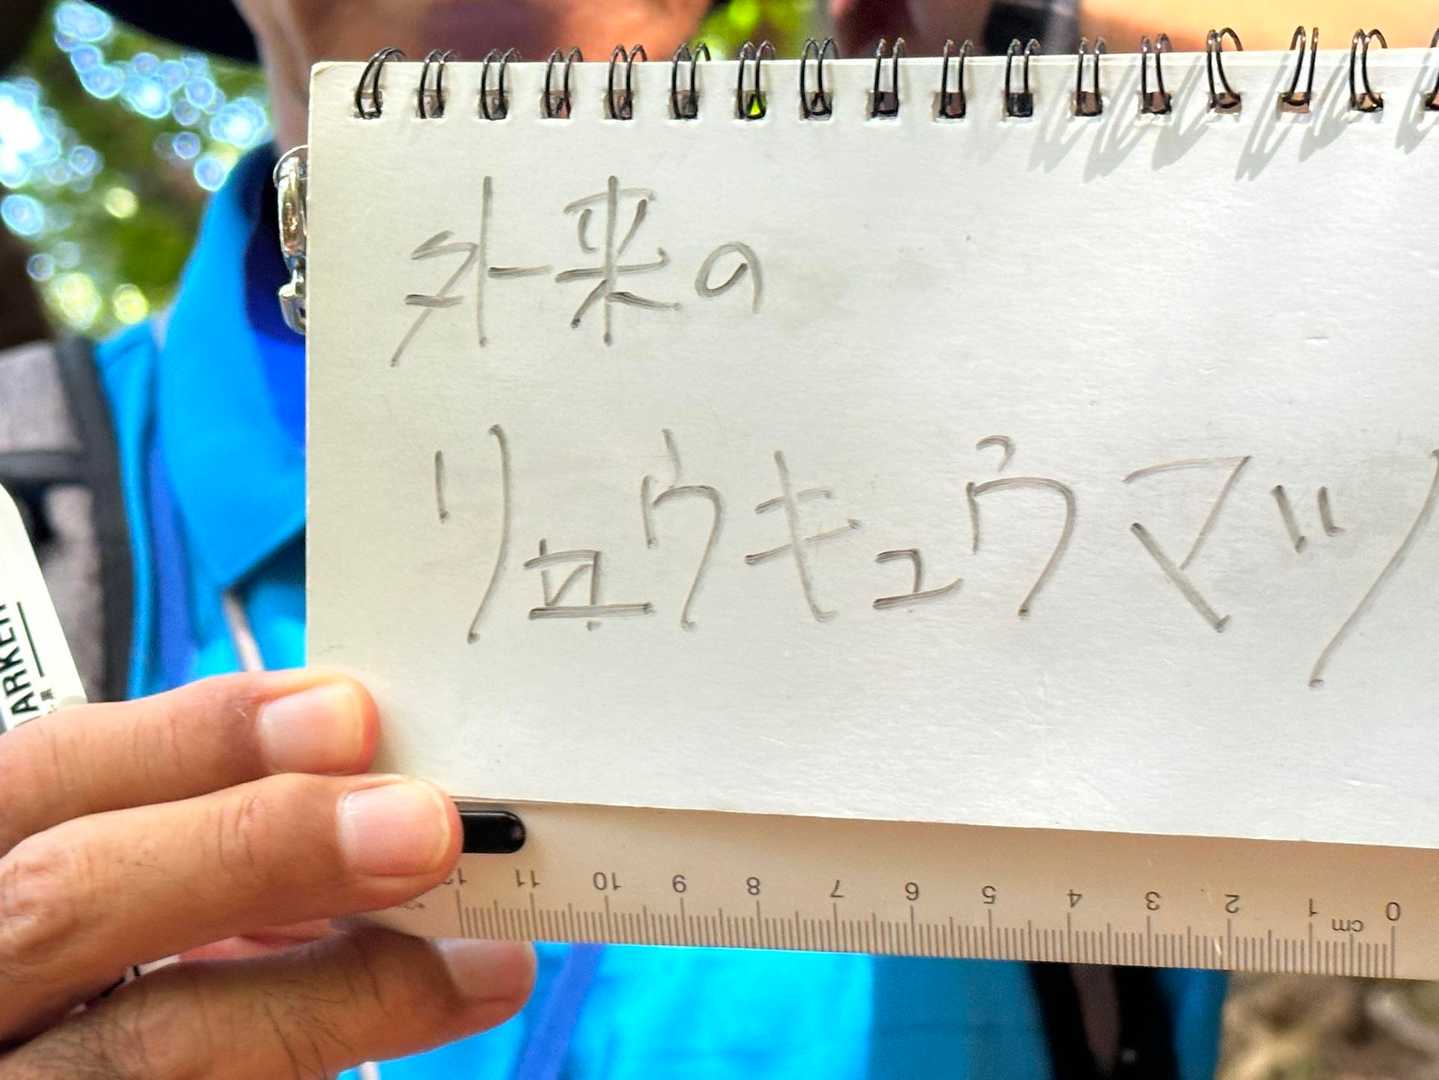 外来の
リュウキュウマツ
ARKER
12 11 10 9 8 7 6 5 4 3 2 1 0
cm